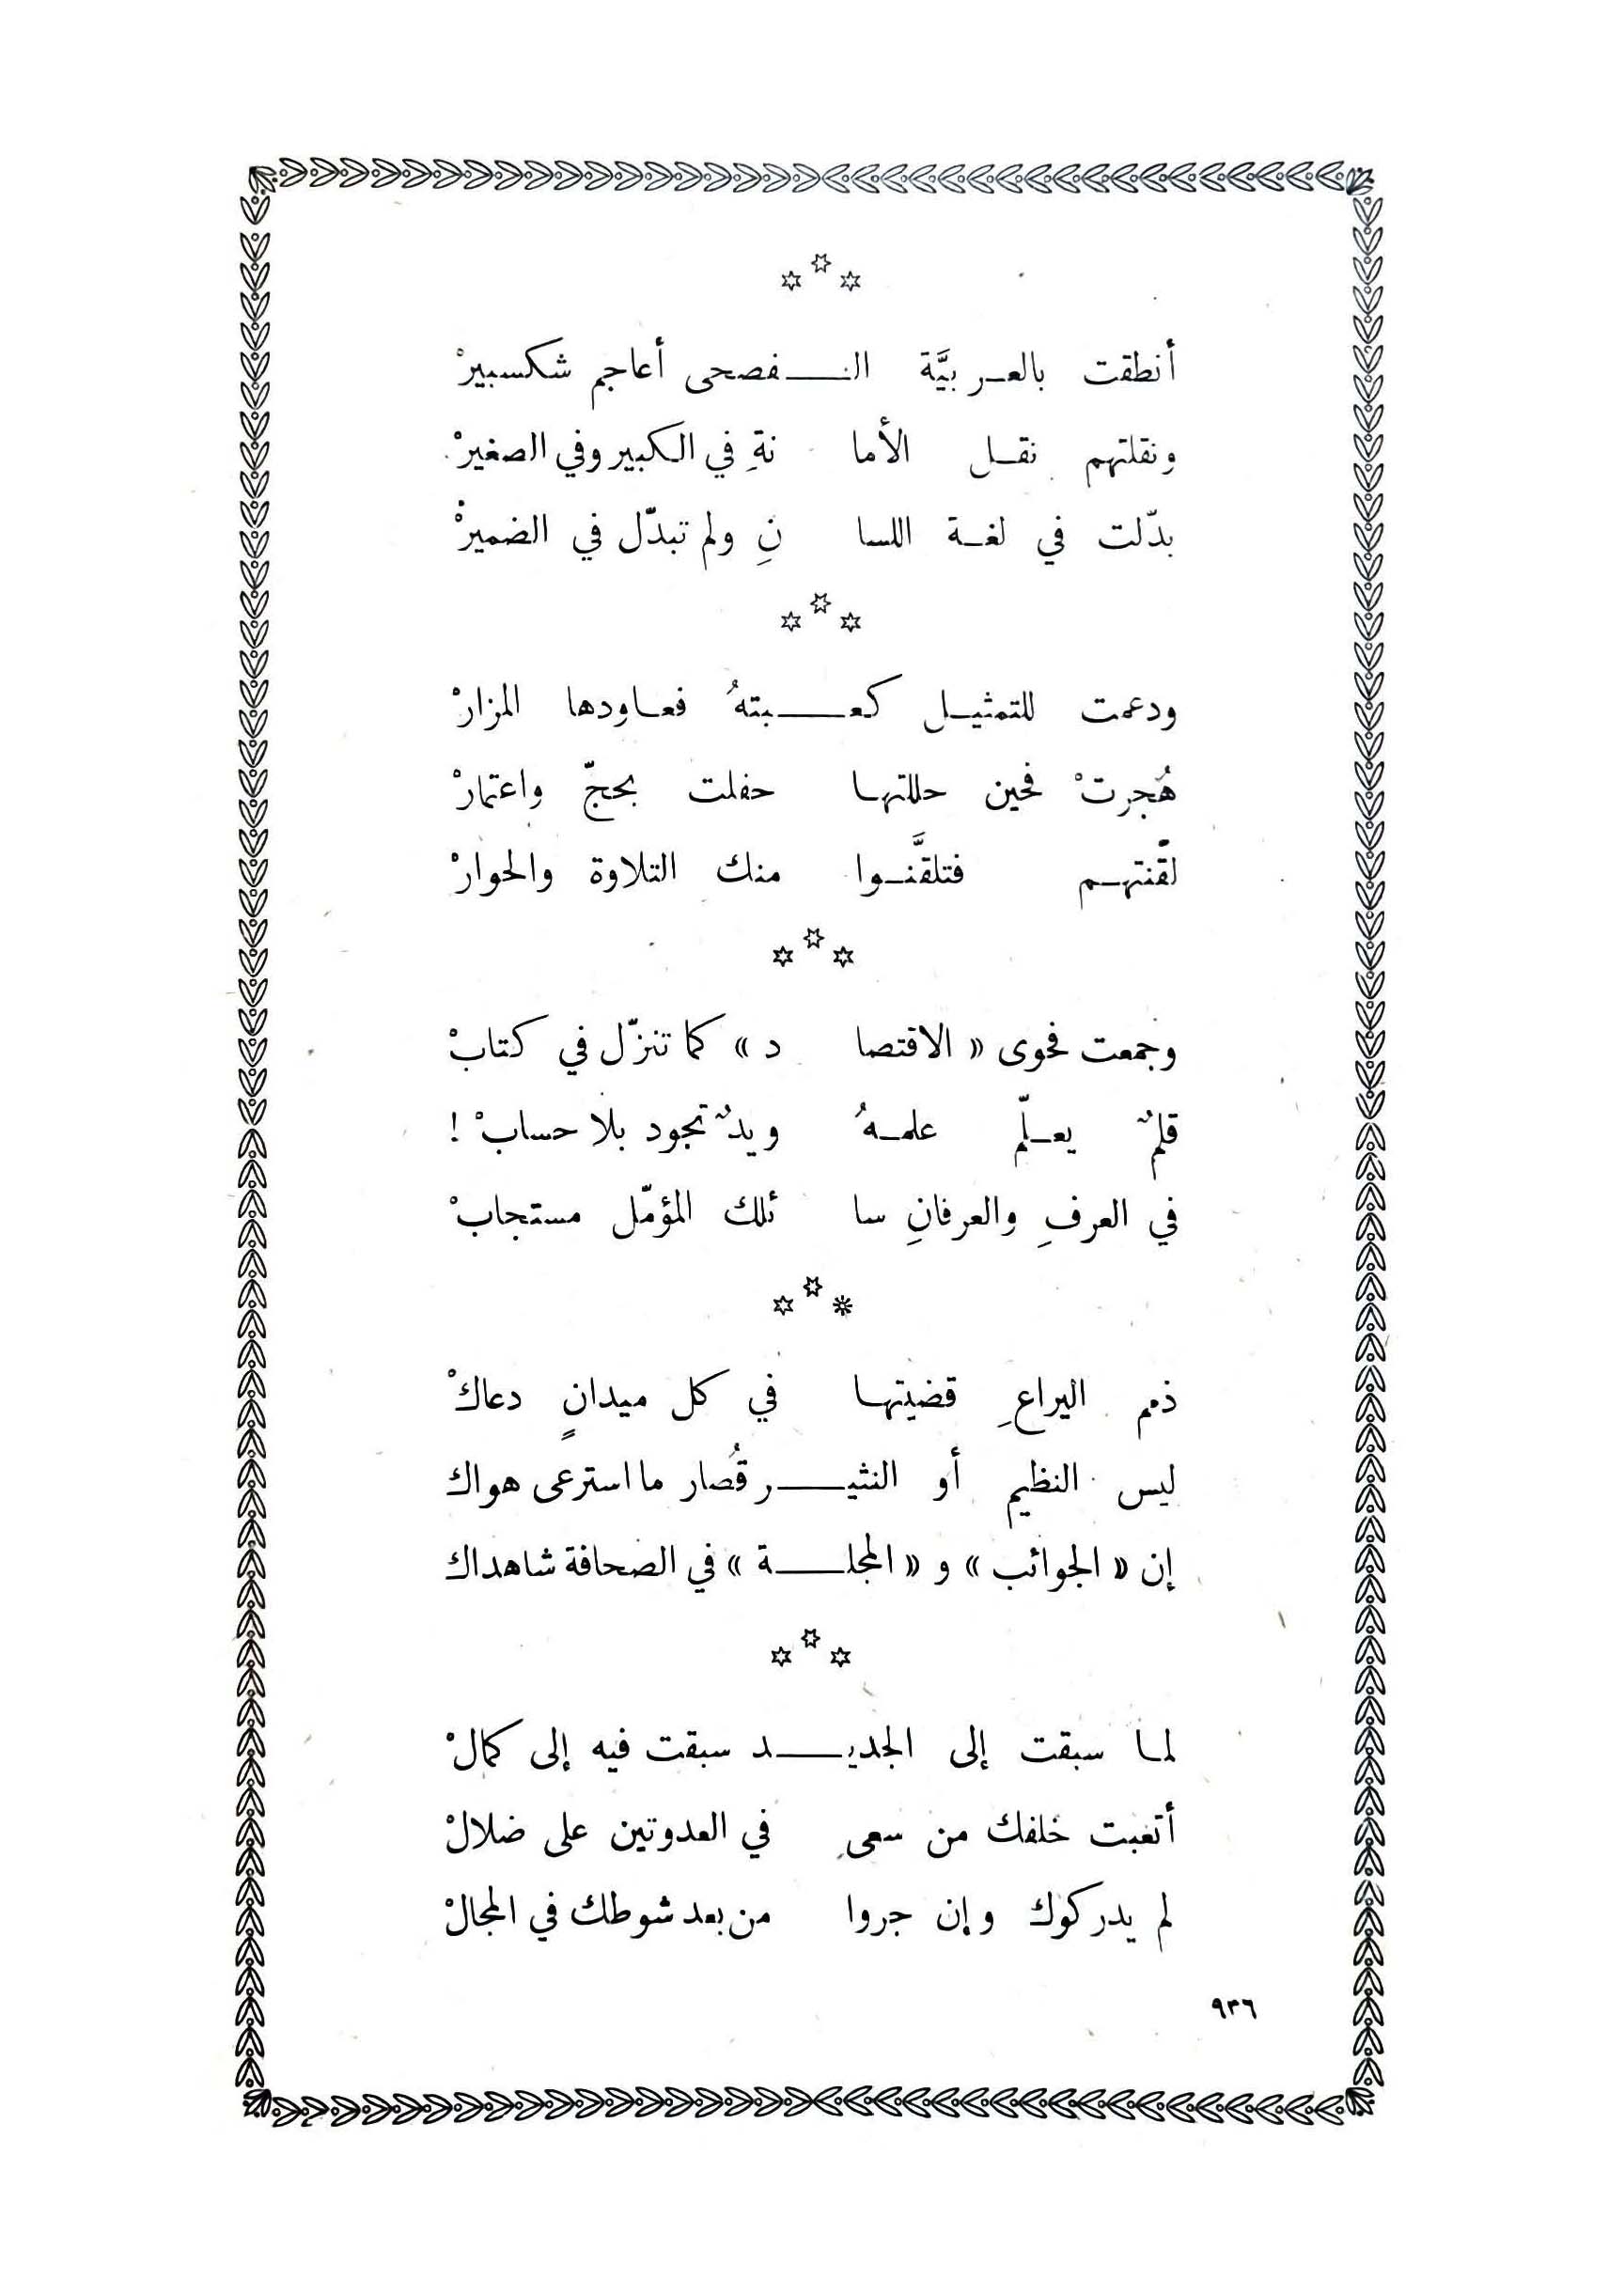 أنطقت بالعربيَّة النفصحى أعاجم شكسبيرْ
ونقلتهم نقل الأما نةِ في الكبير وفي الصغيرْ
بدّلت في لغة اللسا نِ ولم تبدّل في الضميرْ
ودعمت للتمثيل كعبتهُ فعاودها المزارْ
هُجرتْ فحين حللتها حفلت بحجّ واعتمارْ
لقّنتهم فتلقَّنوا منك التلاوة والحوارْ
وجمعت فحوى « الاقتصا د » كما تنزّل في كتابْ
قلمٌ يعلّم علمهُ ويدٌ تجود بلا حسابْ !
في العرفِ والعرفانِ سا ئلك المؤمّل مستجابْ
ذمم اليراعِ قضيتها في كل ميدانٍ دعاكْ
ليس النظيم أو النثير قُصار ما استرعى هواك
إن « الجوائب » و « المجلة » في الصحافة شاهداك
لما سبقت إلى الجديد سبقت فيه إلى كمالْ
أتعبت خلفك من سعى في العدوتين على ضلالْ
لم يدركوك وإن جروا من بعد شوطك في المجالْ
٩٣٦